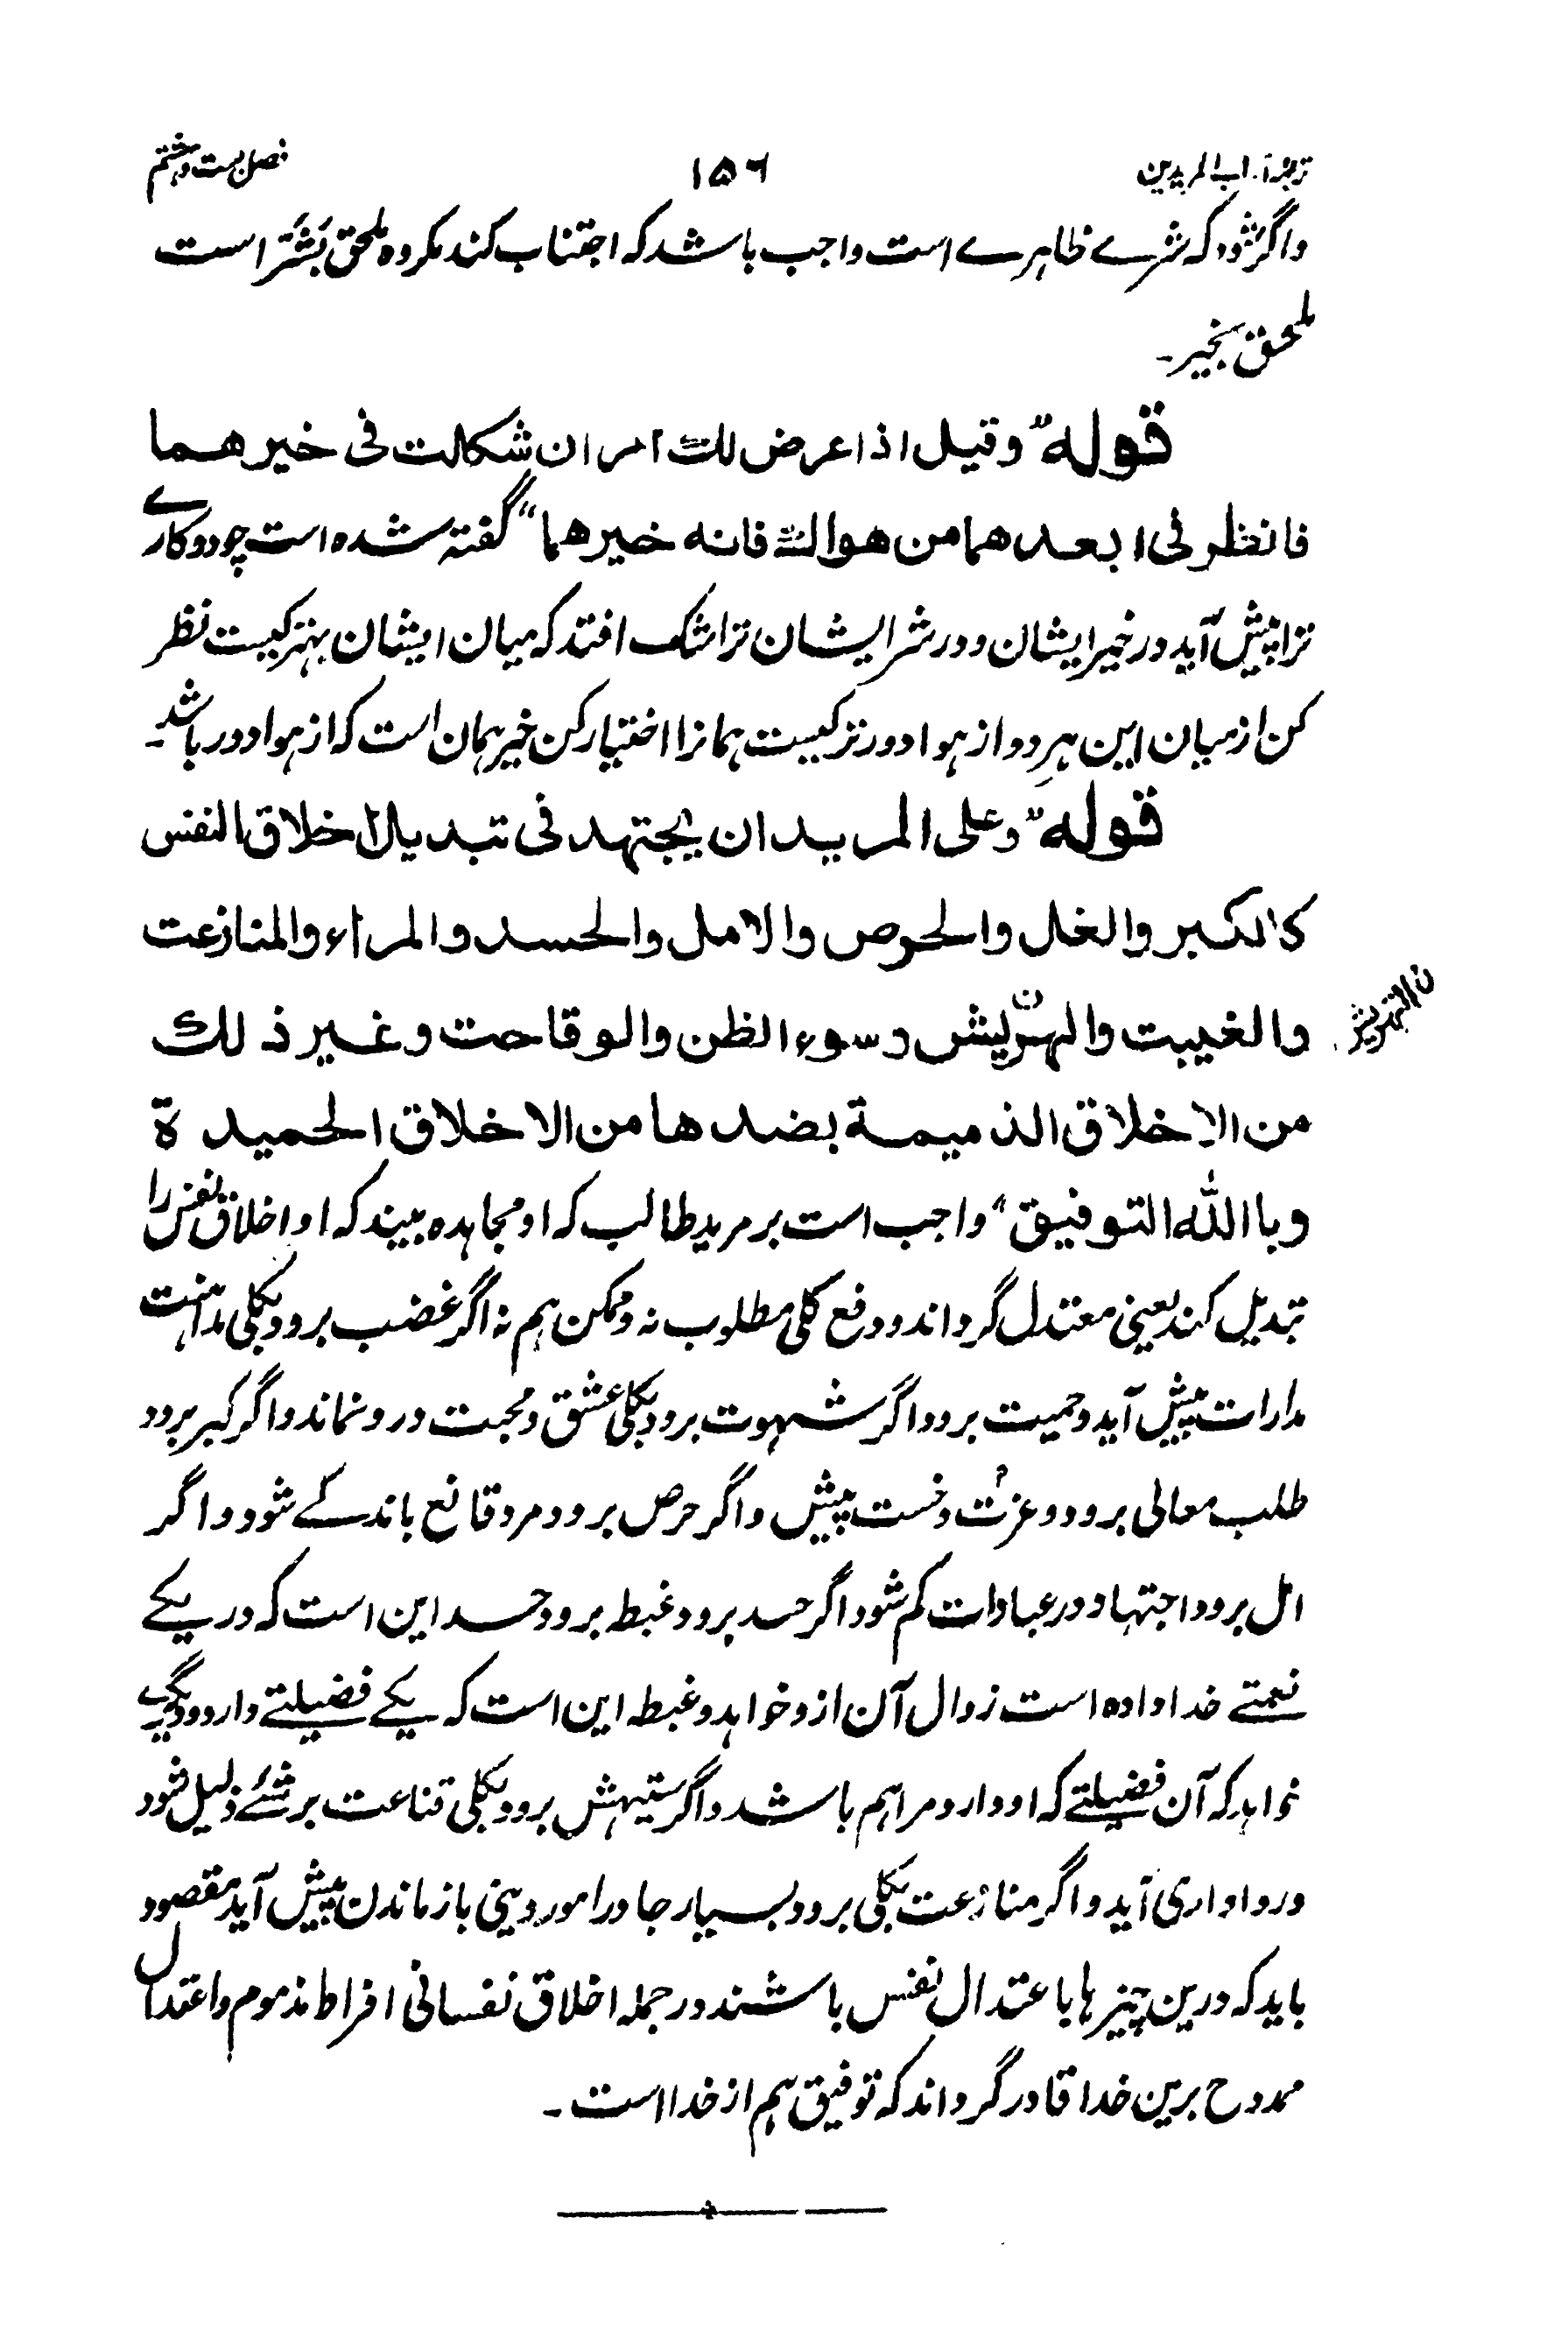 ترجمۂ آداب المریدین ۱۵۶ فصل بست وہشتم
واگر شود کہ شرے ظاہرے است واجب باشد کہ اجتناب کند مکروہ ملحق بشر است
ملحق بخیر۔
قوله "وقیل اذا عرض لك امران شکلت فی خیرهما
فانظر فی ابعدهما من هواك فانه خیرهما" گفتہ شدہ است چو دو کارے
ترا پیش آید در خیر ایشان و در شر ایشان ترا شک افتد کہ میان ایشان بہتر کیست نظر
کن از میان این ہر دو از ہوا دور تر کیست ہمانرا اختیار کن خیر ہمان است کہ از ہوا دور باشد۔
قوله "وعلی المرید ان یجتهد فی تبدیل اخلاق النفس
کالکبر والغل والحرص والامل والحسد والمراء والمنازعت
والغیبت والهریش وسوء الظن والوقاحت وغیر ذلك
من الاخلاق الذمیمة بضدها من الاخلاق الحمیدة
وباالله التوفیق" واجب است بر مرید طالب کہ او مجاہدہ بیند کہ او اخلاق نفس را
تبدیل کند یعنی معتدل گرداند و دفع کلی مطلوب نہ و ممکن ہم نہ اگر غضب برود بکلی مداہنت
مدارات پیش آید و حمیت برود واگر شہوت برود بکلی عشق و محبت در و نماند واگر کبر برود
طلب معالی برود و عزت و خست پیش واگر حرص برود مرد قانع باندکے شود واگر
امل برود اجتہاد در عبادات کم شود اگر حسد برود غبطہ برود حسد این است کہ در یکے
نعمتے خدا دادہ است زوال آن ازو خواہد و غبطہ این است کہ یکے فضیلتے دارد و دیگرے
خواہد کہ آن فضیلتے کہ او دارد مرا ہم باشد واگر ستیہش برود بکلی قناعت بر شئے ذلیل شود
و رواداری آید واگر منازعت بکلی برود بسیار جا در امور دینی باز ماندن پیش آید مقصود
باید کہ درین چیزہا باعتدال نفس باشند در جملہ اخلاق نفسانی افراط مذموم و اعتدال
ممدوح برین خدا قادر گرداند کہ توفیق ہم از خدا است۔